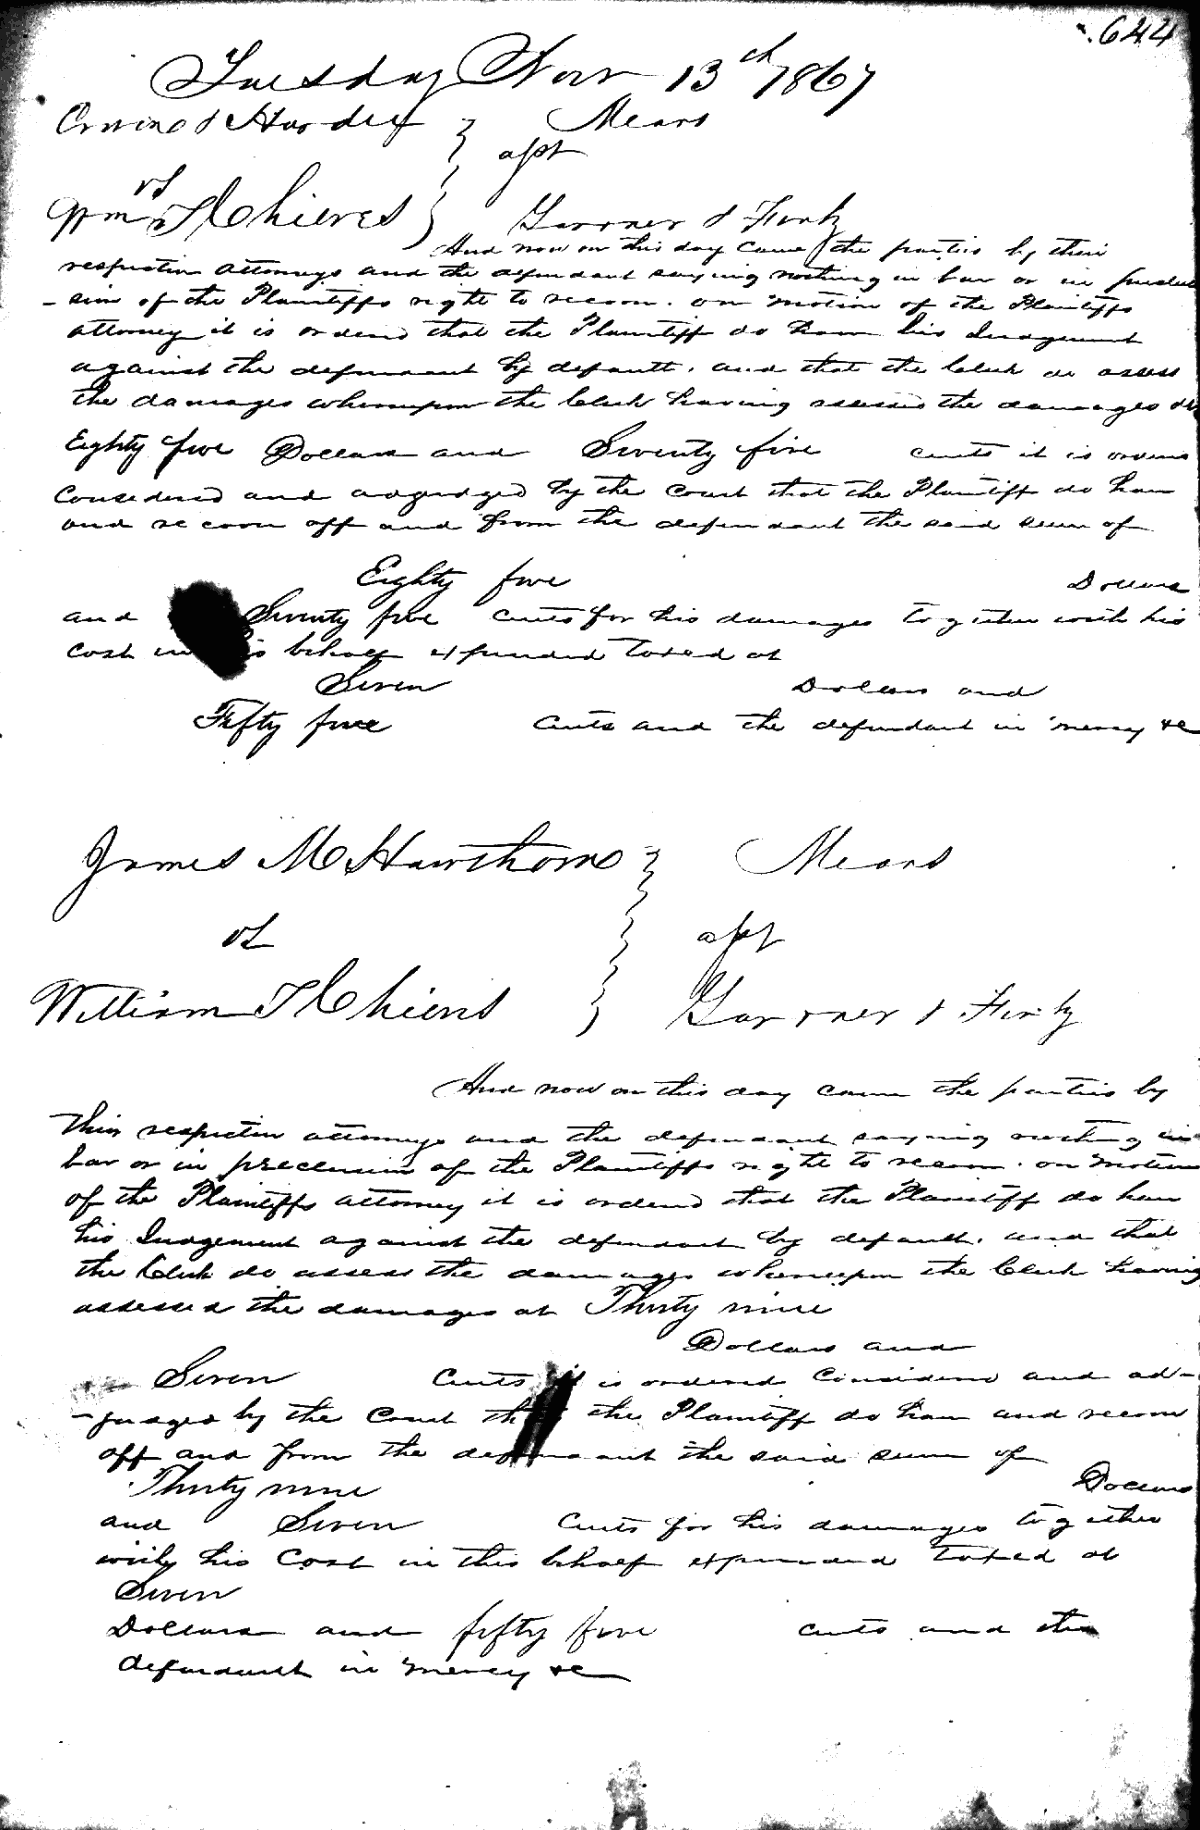 644
Tuesday Novr 13th 1867
& Hardy } Mears
vs } apt
Wm T Chieves } Garrner & Fink
And now on this day came the parties by their
respective attorneys and the defendant saying nothing in bar or in preclu
- sion of the Plaintiffs right to recover. on motion of the Plaintiffs
attorney it is ordered that the Plaintiff do have his Judgment
against the defendant by default. and that the Clerk do assess
the damages whereupon the Clerk having assessed the damages at
Eighty five Dollars and Seventy five cents it is ordered
Considered and adjudged by the Court that the Plaintiff do have
and recover off and from the defendant the said sum of
Eighty five Dollars
and Seventy five cents for his damages together with his
Cost in this behalf expended taxed at
Seven Dollars and
Fifty five Cents and the defendant in mercy &c
James M Hawthorn } Mears
vs } apt
William T Chieves } Garrner & Fink
And now on this day came the parties by
their respective attorneys and the defendant saying nothing in
bar or in preclusion of the Plaintiffs right to recover. on motion
of the Plaintiffs attorney it is ordered that the Plaintiff do have
his Judgement against the defendant by default. and that
the Clerk do assess the damages whereupon the Clerk having
assessed the damages at Thirty nine
Dollars and
Seven Cents it is ordered Considered and ad-
- judged by the Court that the Plaintiff do have and recover
off and from the defendant the said sum of
Thirty nine Dollars
and Seven Cents for his damages together
with his Cost in this behalf expended taxed at
Seven
Dollars and fifty five cents and the
defendant in mercy &c